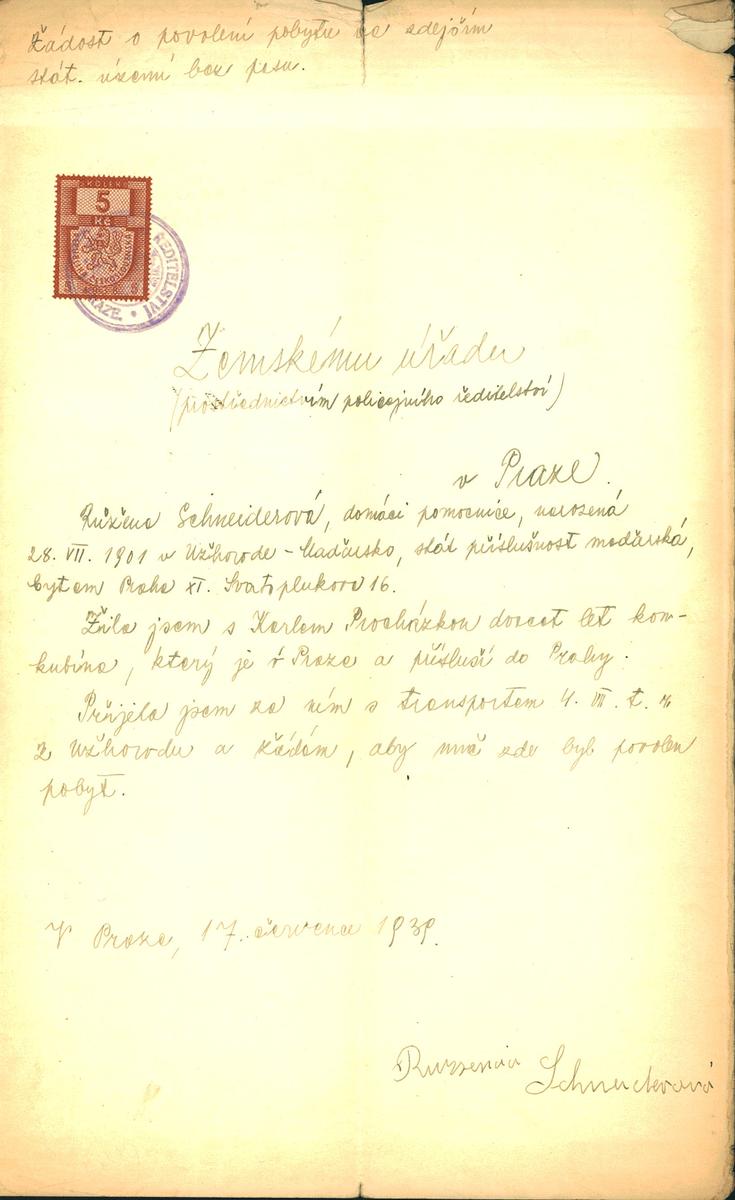 Žádost o povolení pobytu ve zdejším
stát. území bez pasu.
KOLEK
5
Kč
ČESKOSLOVENSKÁ
ŘEDITELSTVÍ
PRAZE.
Zemskému úřadu
(prostřednictvím policejního ředitelství)
v Praze.
Růžena Schneiderová, domácí pomocnice, narozená
28. VII. 1901 v Užhorode - Maďarsko, stát příslušnost maďarská,
bytem Praha XI. Svatoplukova 16.
Žila jsem s Karlem Procházkou dvacet let kon-
kubína, který je v Praze a přísluší do Prahy.
Přijela jsem za ním s transportem 4. VII. t. r
z Užhorodu a žádám, aby mně zde byl povolen
pobyt.
V Praze, 17. července 1939.
Ruzsena Schneiderová